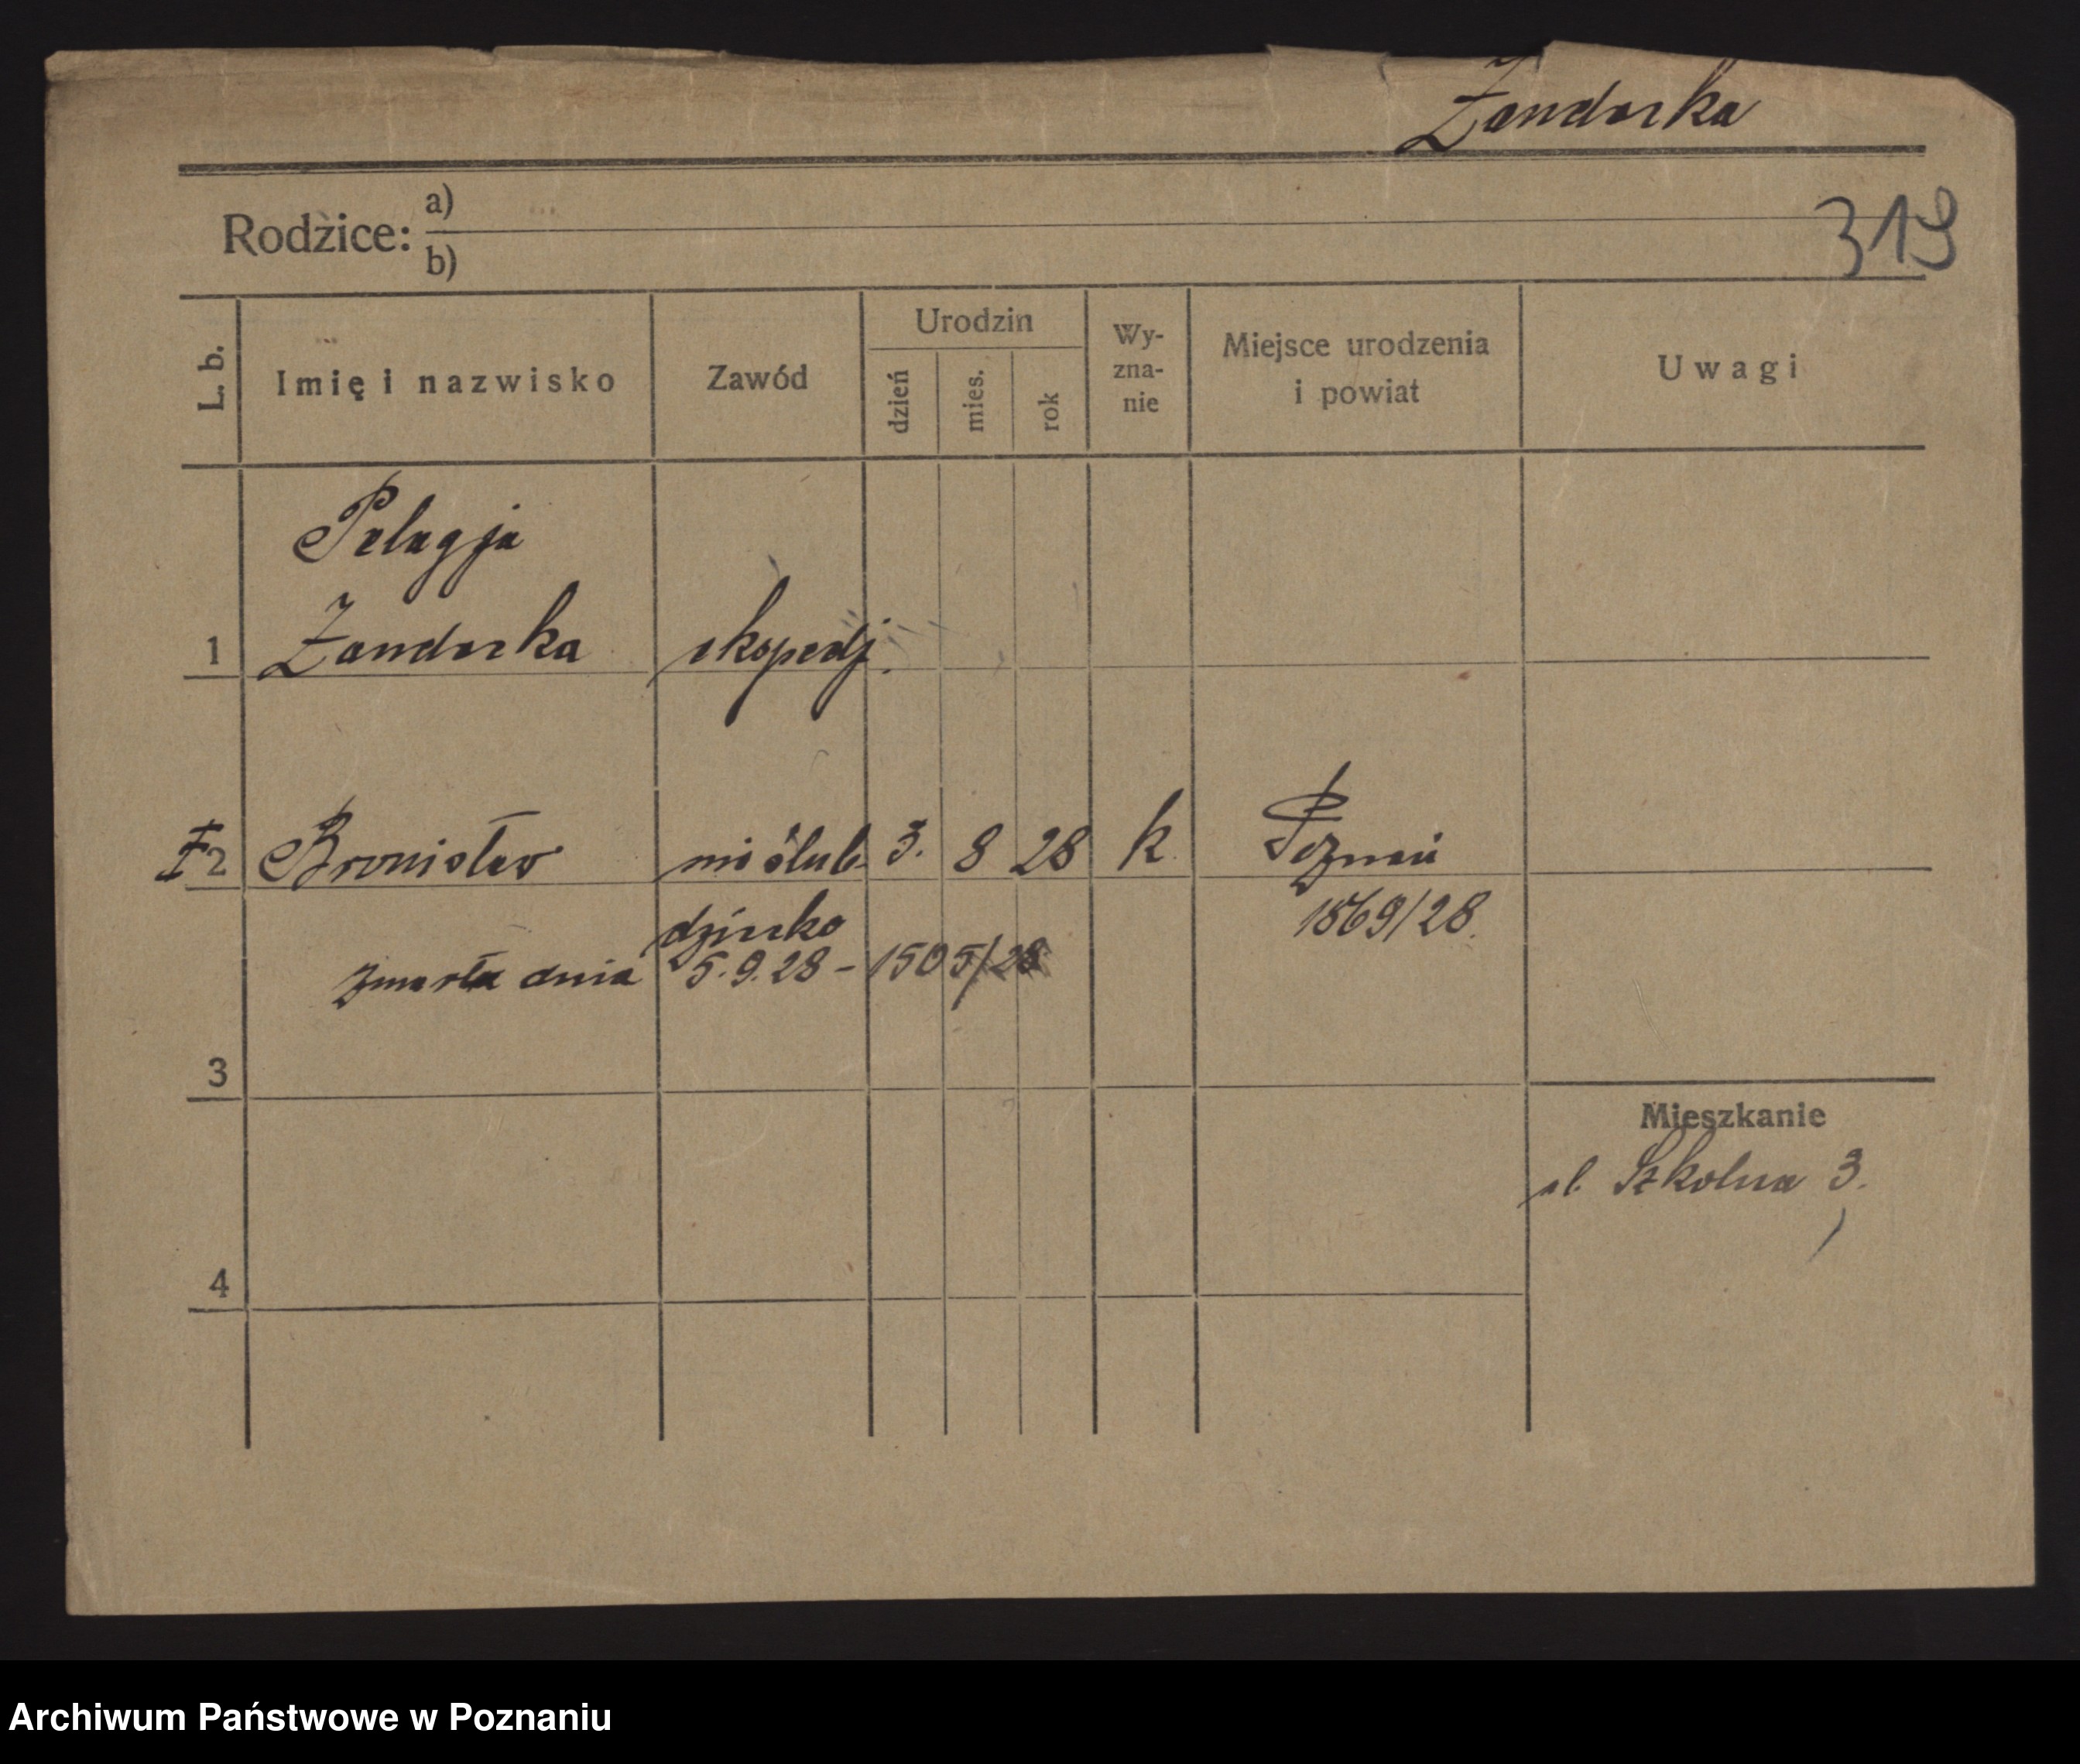 Żandarka
319
Rodzice: a)
b)
L. b. Imię i nazwisko Zawód Urodzin dzień mies. rok Wy-zna-nie Miejsce urodzenia i powiat Uwagi
Pelagja
1 Żandarka ekspedj.
2 Bronisław nieślub. 3. 8 28 k. Poznań
dziecko 1869/28.
zmarła dnia 5.9.28 - 1505/28
3
Mieszkanie
ul. Szkolna 3.
4
Archiwum Państwowe w Poznaniu